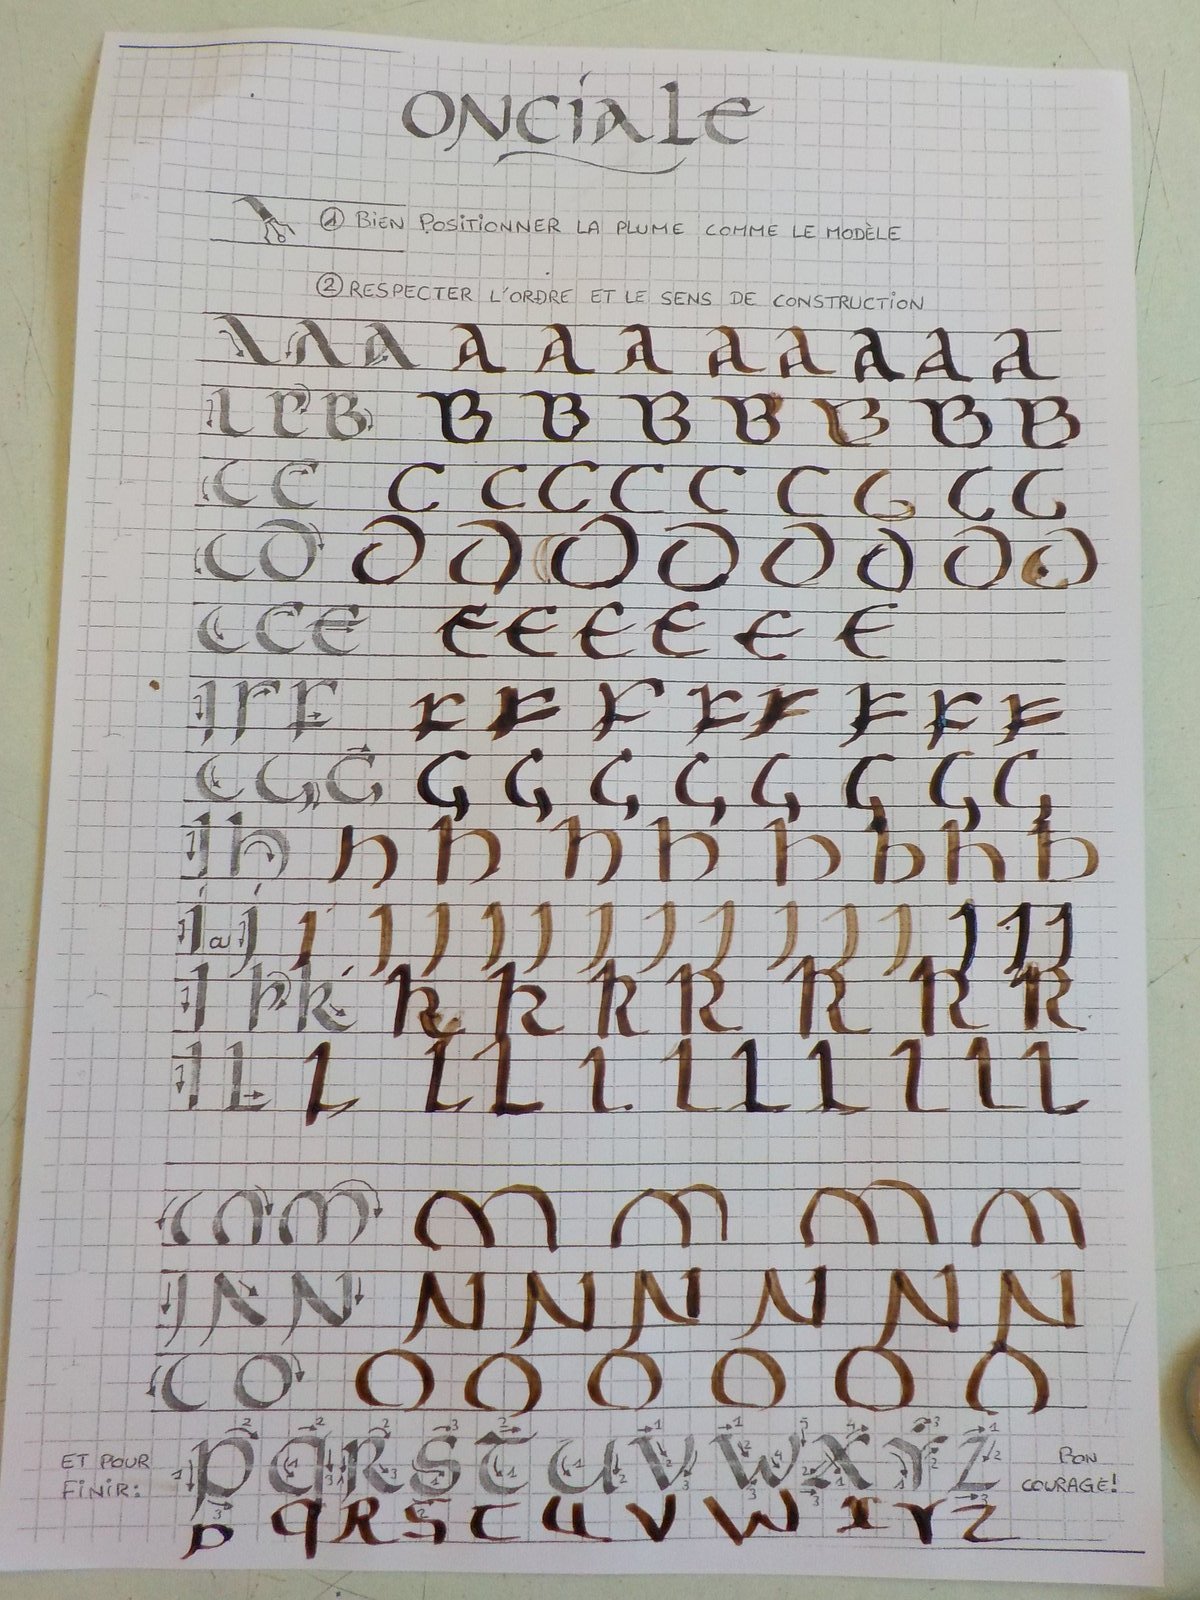 ONCIALE
① BIEN POSITIONNER LA PLUME COMME LE MODÈLE
② RESPECTER L'ORDRE ET LE SENS DE CONSTRUCTION
A A A A A A A A A
B B B B B B B B
C C C C C C C C C C C
D D D D D D D D D
E E E E E E E
F F F F F F F F F
G G G G G G G G G
h h h h h h h h h
i ou j
k k k k k k k k
L L L L L L L L L L L
M M M M M
N N N N N N N
O O O O O O O
ET POUR FINIR: P Q R S T U V W X Y Z BON COURAGE!
P Q R S T U V W X Y Z